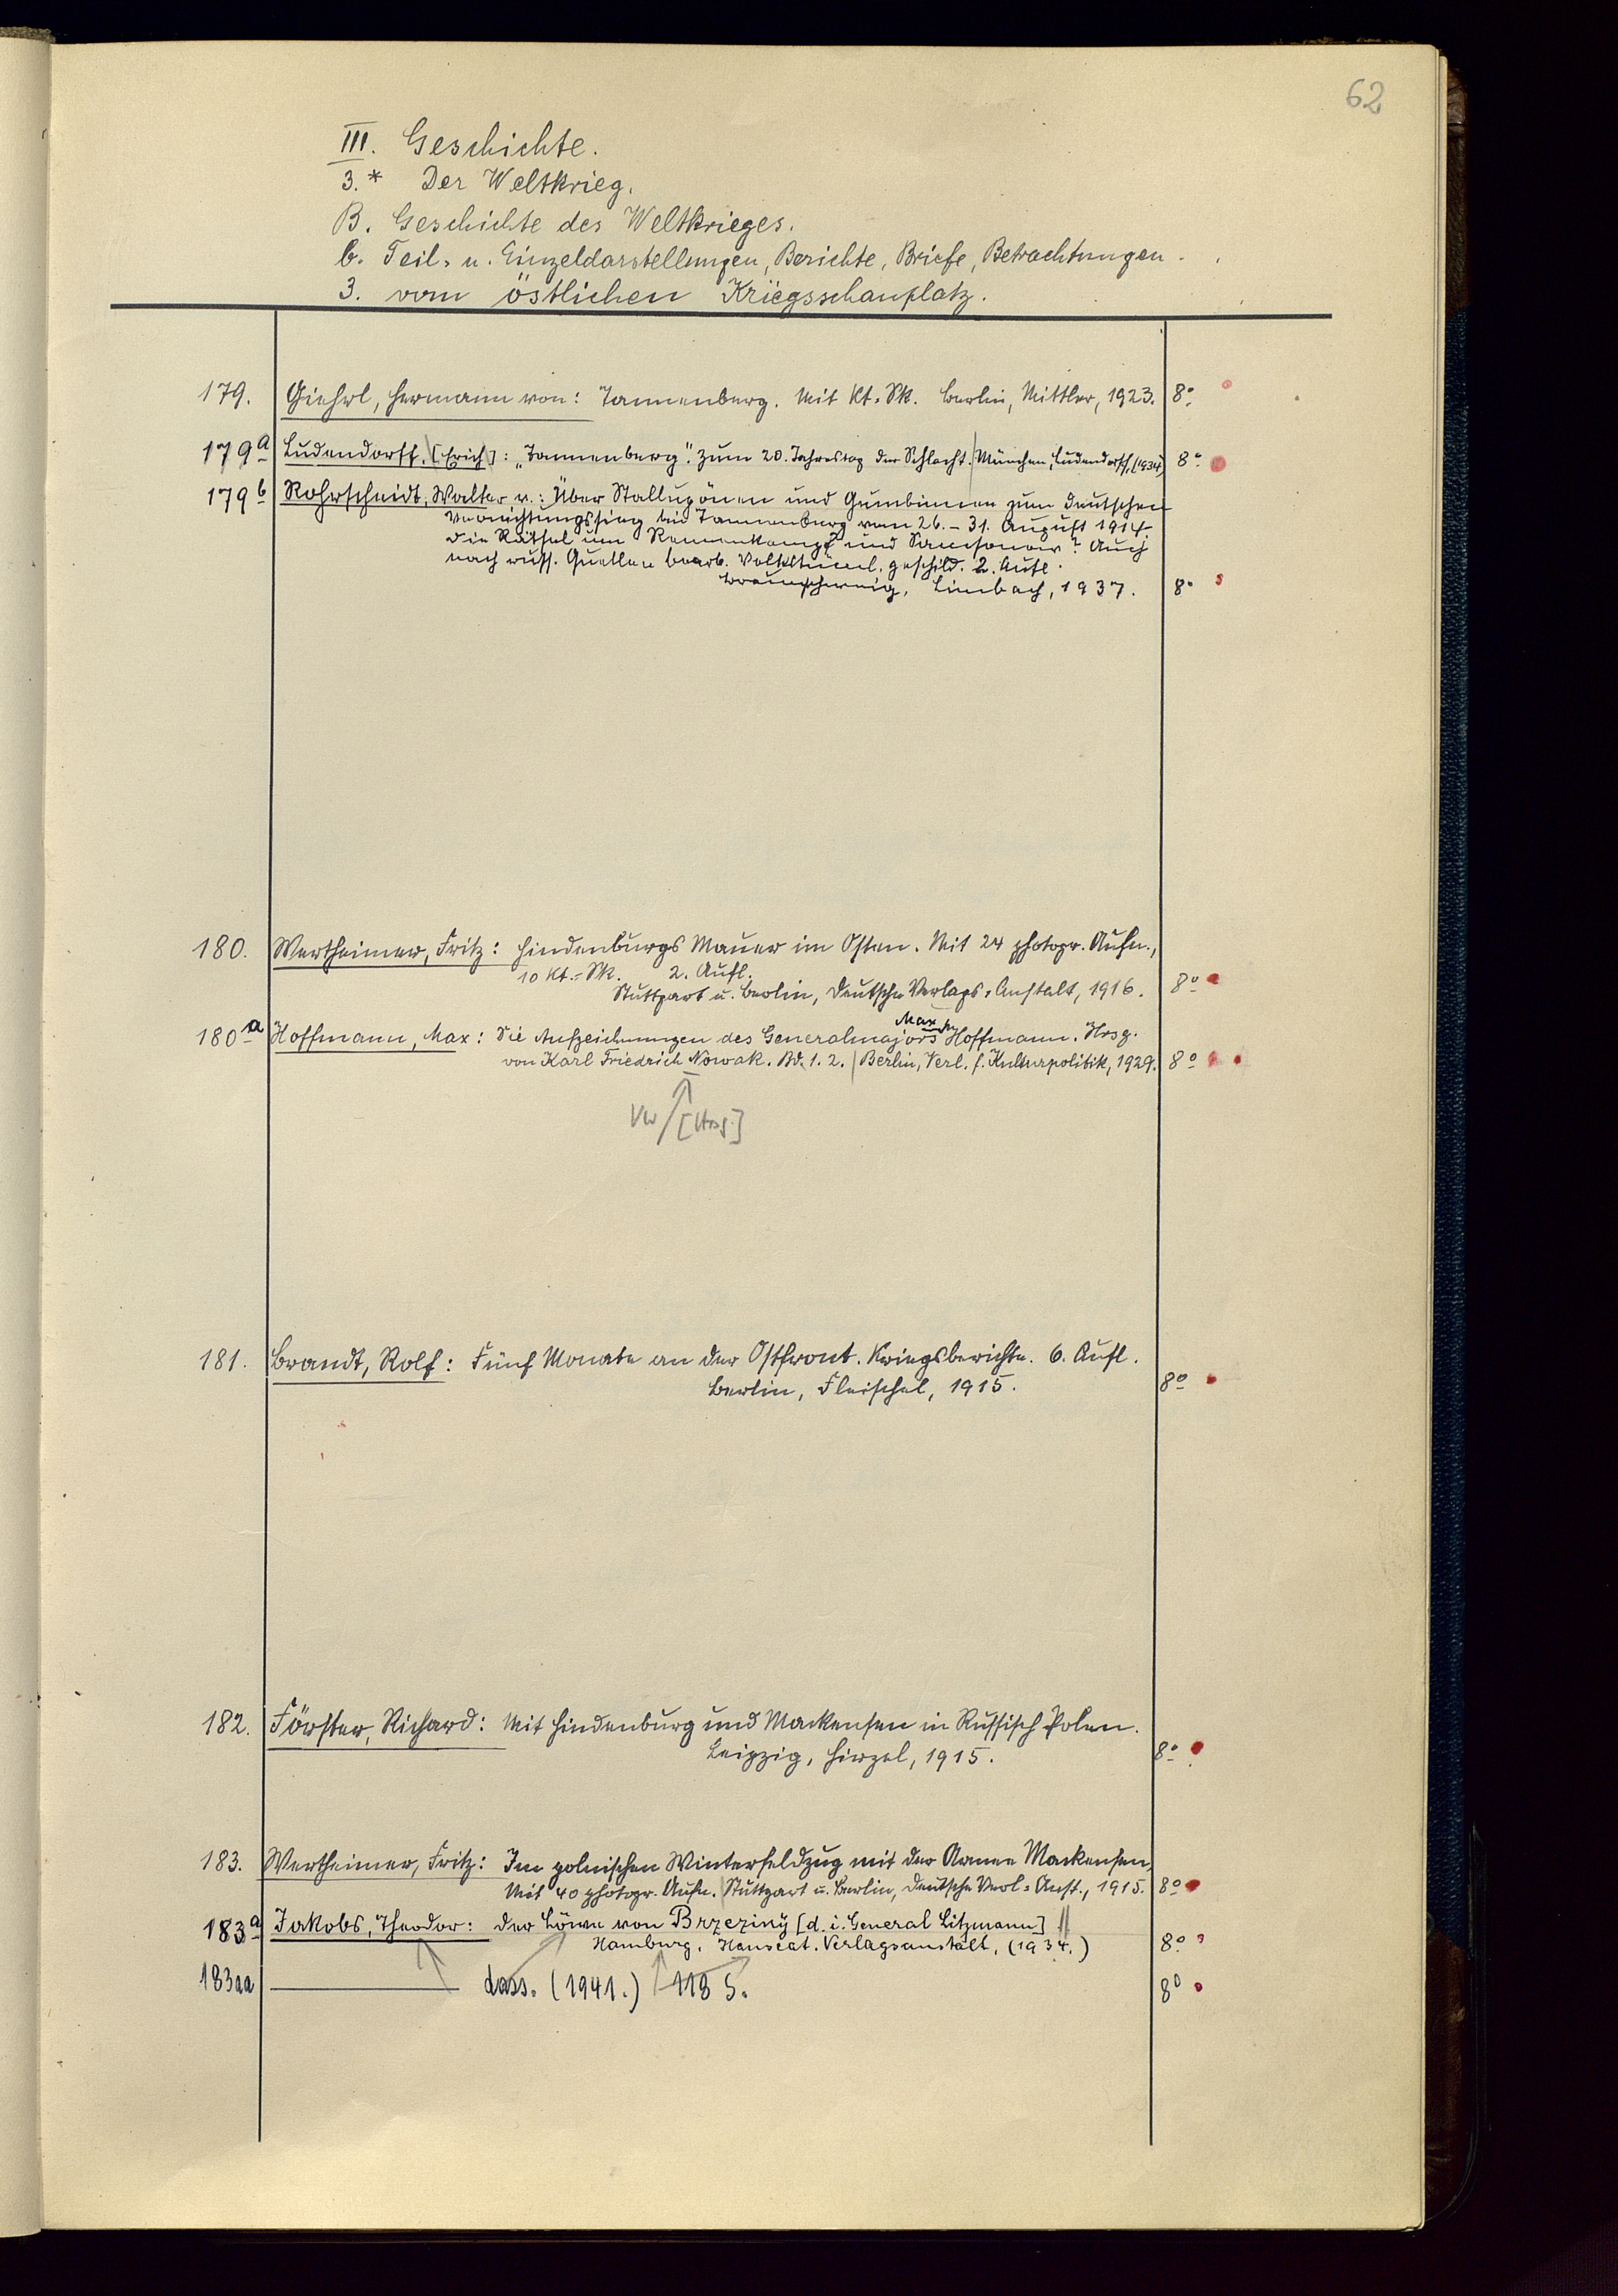 62
III. Geschichte.
3.* Der Weltkrieg.
B. Geschichte des Weltkrieges.
b. Teil- u. Einzeldarstellungen, Berichte, Briefe, Betrachtungen.
3. vom östlichen Kriegsschauplatz.
179. Giehrl, Hermann von: Tannenberg. Mit Kt.-Sk. Berlin, Mittler, 1923. 8°
179a Ludendorff, [Erich]: „Tannenberg". Zum 20. Jahrestag der Schlacht. München, Ludendorff, (1934) 8°
179b Rohrscheidt, Walter v.: Über Stallupönen und Gumbinnen zum deutschen
Vernichtungssieg bei Tannenberg vom 26. - 31. August 1914.
Die Rätsel um Rennenkampf und Samsonow? Auch
nach russ. Quellen bearb. Volkstüml. geschild. 2. Aufl.
Braunschweig, Limbach, 1937. 8°
180. Wertheimer, Fritz: Hindenburgs Mauer im Osten. Mit 24 photogr. Aufn.,
10 Kt.-Sk. 2. Aufl.
Stuttgart u. Berlin, Deutsche Verlags-Anstalt, 1916. 8°
Max
180a Hoffmann, Max: Die Aufzeichnungen des Generalmajors Hoffmann. Hrsg.
von Karl Friedrich Nowak. Bd. 1. 2. Berlin, Verl. f. Kulturpolitik, 1929. 8°
VW [Hrsg]
181. Brandt, Rolf: Fünf Monate an der Ostfront. Kriegsberichte. 6. Aufl.
Berlin, Fleischel, 1915. 8°
182. Förster, Richard: Mit Hindenburg und Mackensen in Russisch Polen.
Leipzig, Hirzel, 1915. 8°
183. Wertheimer, Fritz: Im polnischen Winterfeldzug mit der Armee Mackensen,
Mit 40 photogr. Aufn. Stuttgart u. Berlin, Deutsche Verl.-Anst., 1915. 8°
183a Jakobs, Theodor: Der Löwe von Brzeziny [d. i. General Litzmann]
Hamburg, Hanseat. Verlagsanstalt, (1934.) 8°
183aa dass. (1941.) 118 S. 8°